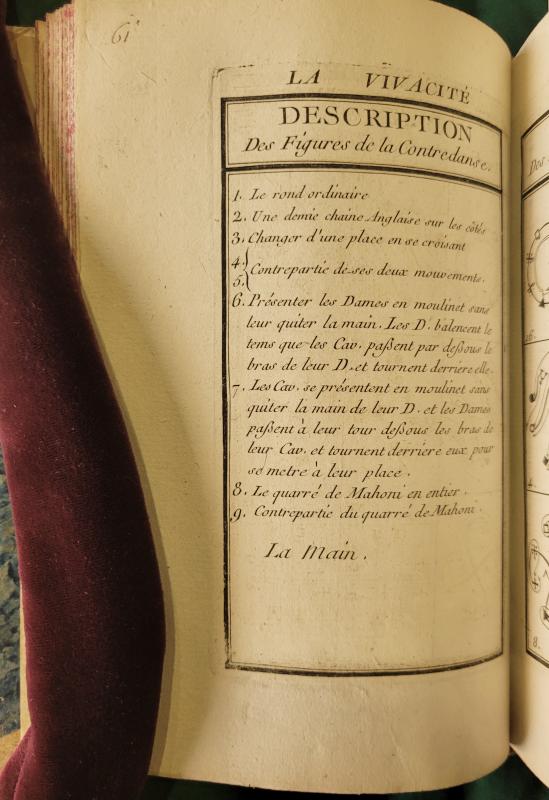 61
LA VIVACITÉ
DESCRIPTION
Des Figures de la Contredanse.
1. Le rond ordinaire
2. Une demie chaine Anglaise sur les côtés
3. Changer d'une place en se croisant
4.
Contrepartie de ses deux mouvements.
5.
6. Présenter les Dames en moulinet sans
leur quiter la main. Les D. balencent le
tems que les Cav. paßent par deßous le
bras de leur D. et tournent derriere elle.
7. Les Cav. se présentent en moulinet sans
quiter la main de leur D. et les Dames
paßent à leur tour deßous les bras de
leur Cav. et tournent derriere eux pour
se metre à leur place.
8. Le quarré de Mahoni en entier.
9. Contrepartie du quarré de Mahoni.
La Main.
Des
6.
4.
8.